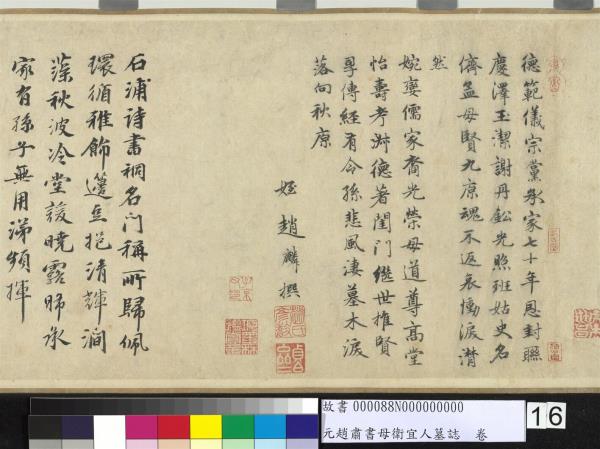 德範儀宗黨承家七十年恩封聯
慶澤玉潔謝丹鉛光照班姑史名
儕孟母賢九原魂不返哀慟淚潸
然
婉孌儒家裔光榮母道尊高堂
怡壽考淑德著閨門繼世推賢
傳經有令孫悲風淒墓木淚
落向秋原
姪趙麟撰
石浦詩書 名門稱所歸佩
環循雅飾籩豆挹清輝澗
藻秋波冷堂萱曉露晞承
家有孫子無用涕頻揮
故書 000088N000000000
16
元趙肅書母衛宜人墓誌 卷